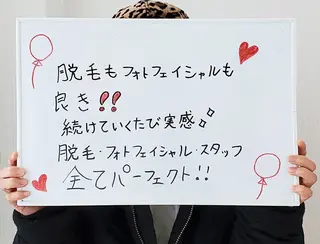 脱毛もフォトフェイシャルも
良き!!
続けていくたび実感✨
脱毛・フォトフェイシャル・スタッフ
全てパーフェクト!!